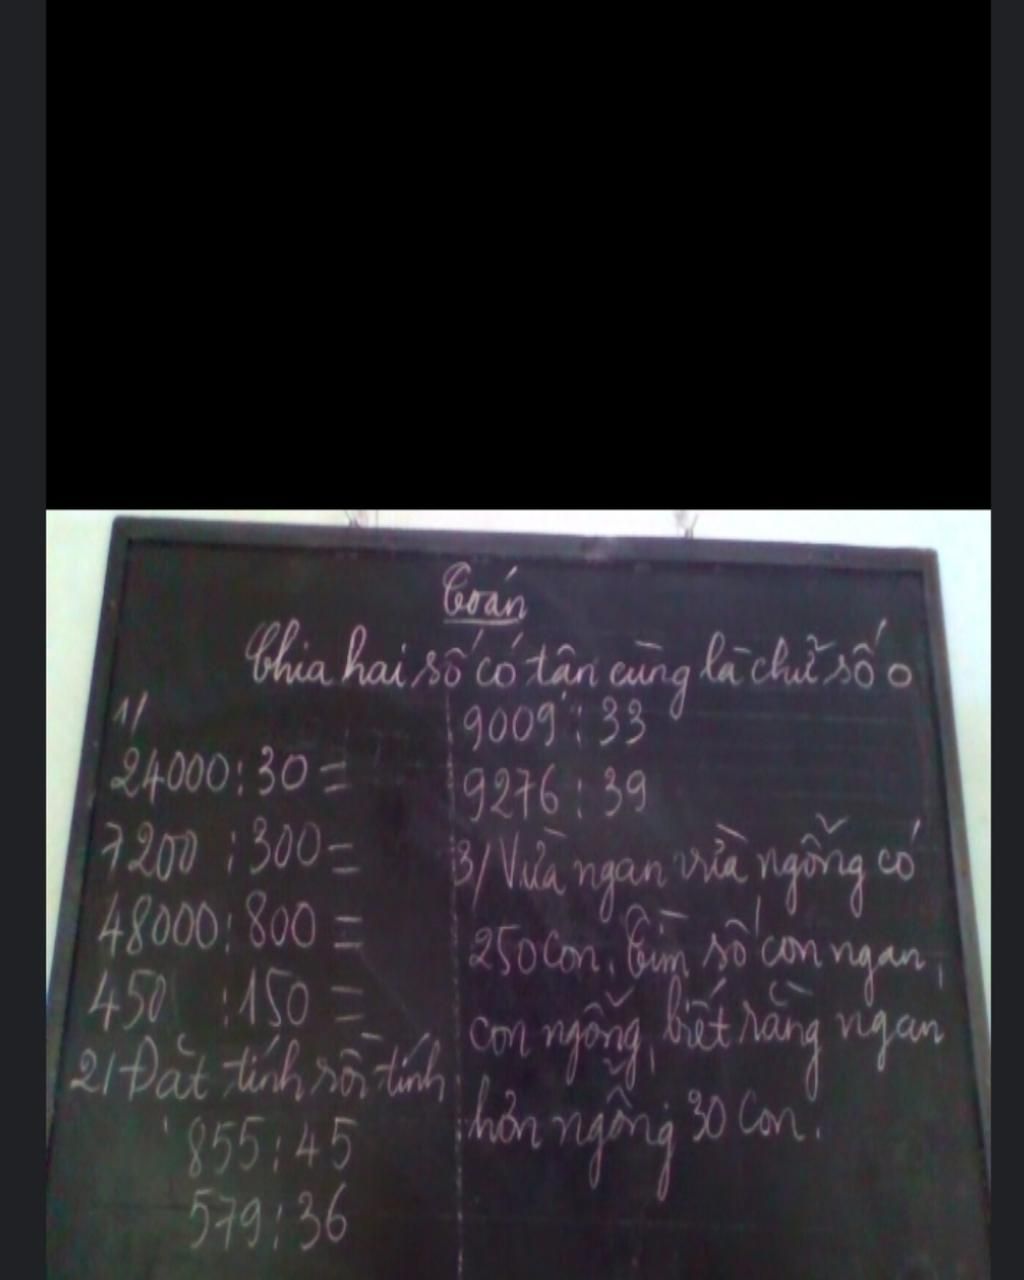 Toán
Chia hai số có tận cùng là chữ số 0
1/
24000 : 30 =
7200 : 300 =
48000 : 800 =
450 : 150 =
2/ Đặt tính rồi tính
855 : 45
579 : 36
9009 : 33
9276 : 39
3/ Vừa ngan vừa ngỗng có
250 con. Tìm số con ngan,
con ngỗng, biết rằng ngan
hơn ngỗng 30 con.